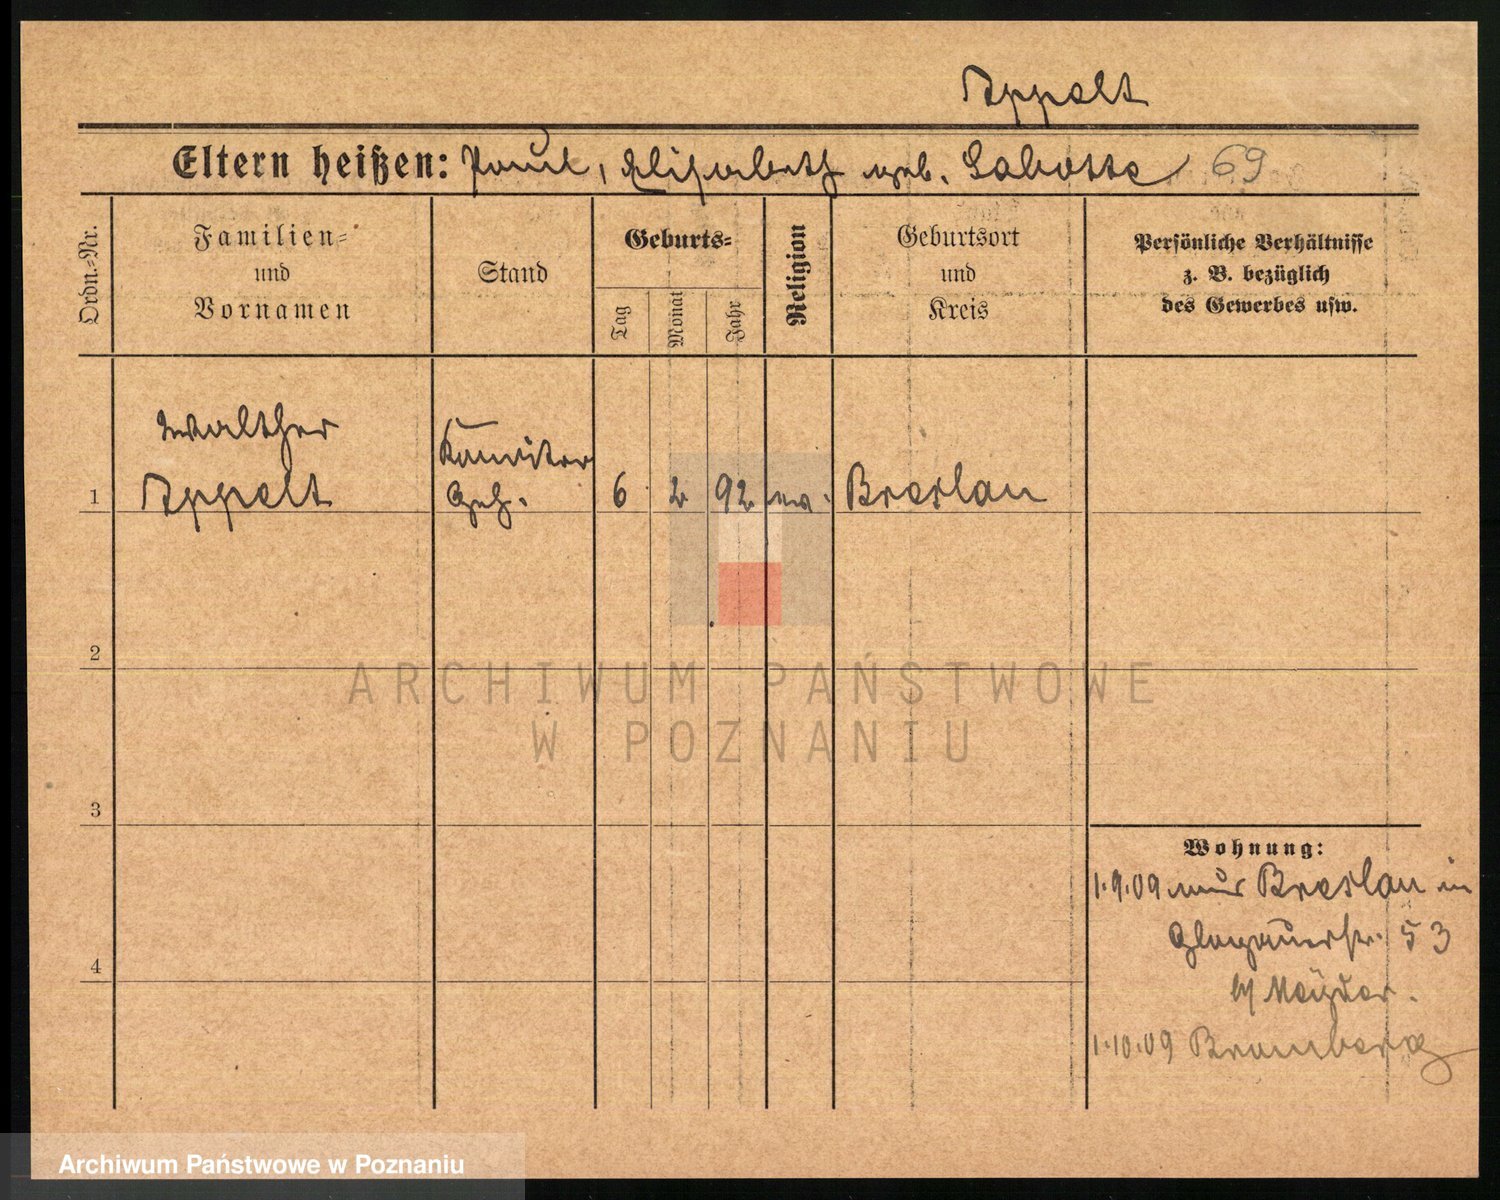 Appelt
Eltern heißen: Paul, Elisabeth geb. 69
Ordn.-Nr.
Familien-
und
Vornamen
Stand
Geburts-
Tag
Monat
Jahr
Religion
Geburtsort
und
Kreis
Persönliche Verhältnisse
z. B. bezüglich
des Gewerbes usw.
Walther
1 Appelt
Geh. 6 2 92 Breslau
2
ARCHIWUM PAŃSTWOWE
W POZNANIU
3
Wohnung:
1.9.09 aus Breslau in
Glogauerstr. 53
4
1.10.09 Bromberg
Archiwum Państwowe w Poznaniu